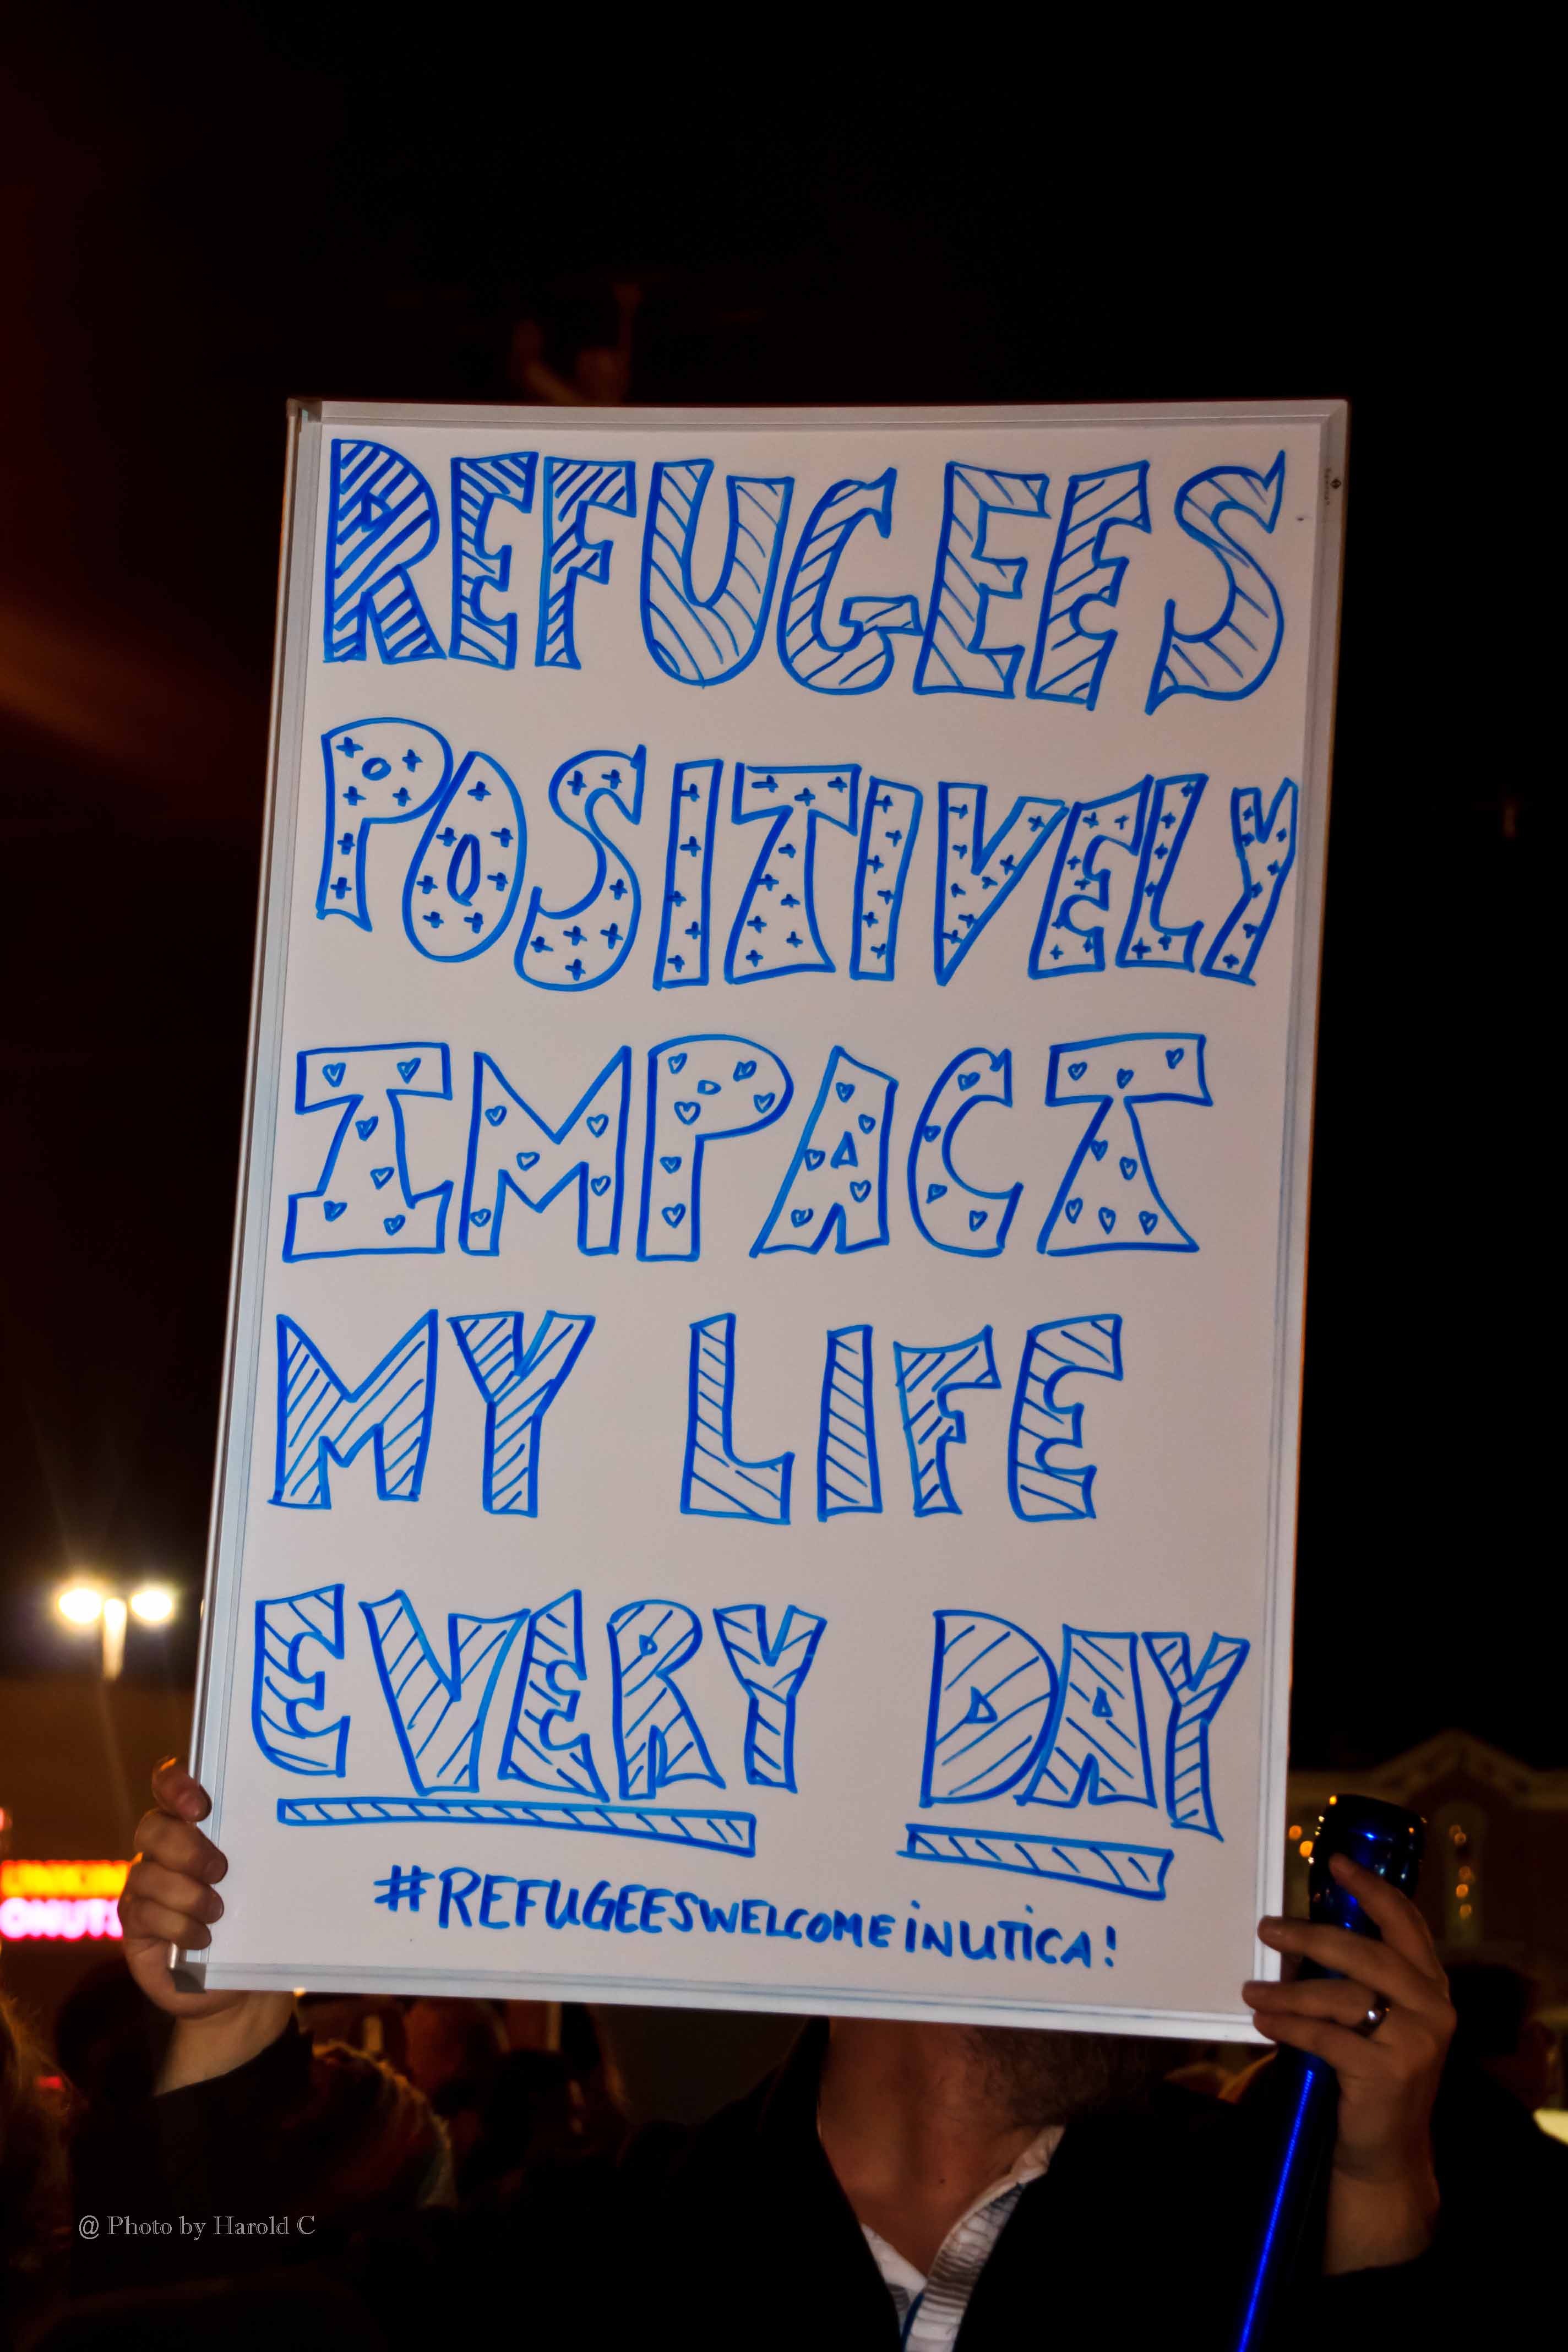 REFUGEES
POSITIVELY
IMPACT
MY LIFE
EVERY DAY
#REFUGEESWELCOMEiNUTiCA!
@ Photo by Harold C